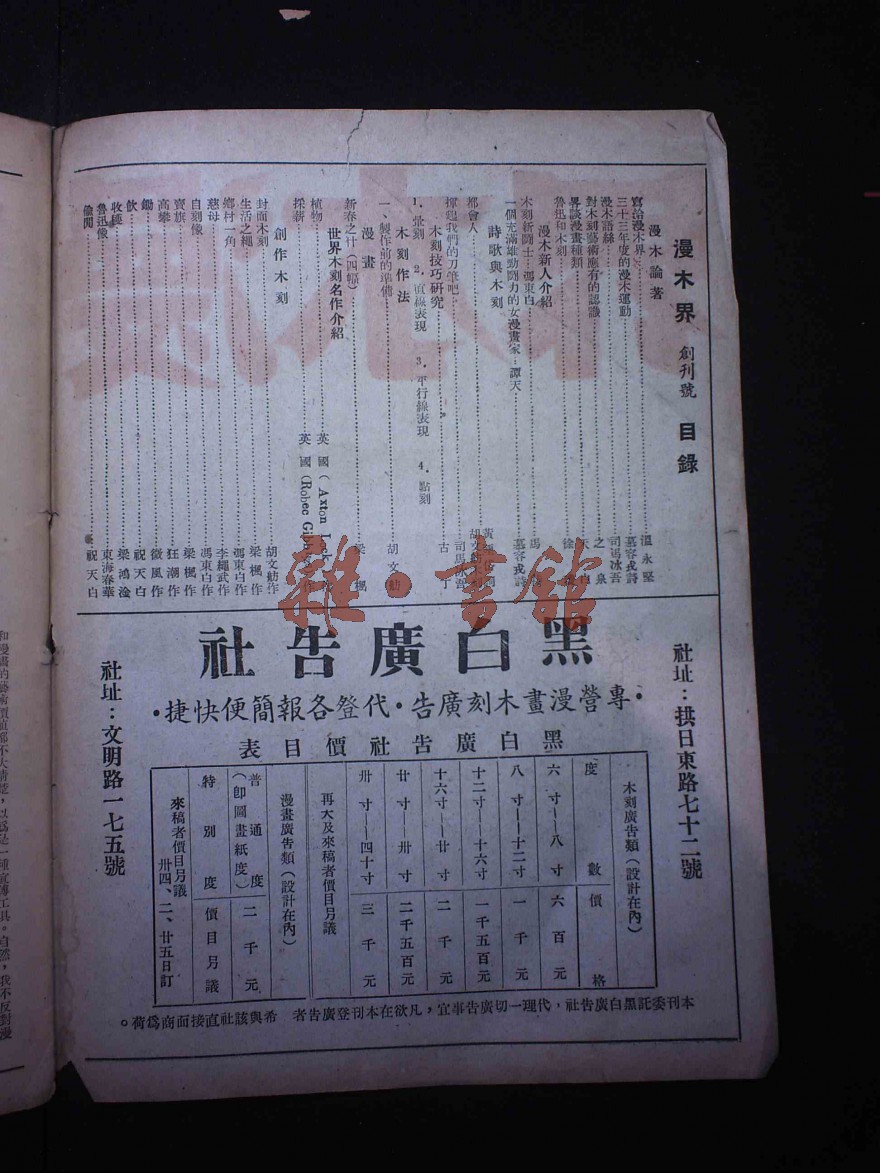 漫木界 創刊號 目錄
漫木論著
寫給漫木界 溫永堅
三十三年度的漫木運動 慕容戎詩
漫木語絲 司馬冰吾
對木刻藝術應有的認識 之泉
畧談漫畫種類
魯迅和木刻 徐
漫木新人介紹
木刻新闘士—馮東白 馬
一個充滿雄勁闘力的女漫畫家—譚天 慕容戎詩
詩歌與木刻
都會人
揮起我們的刀筆吧 司馬冰吾
木刻技巧研究 古丁
1.彙刻 2.直線表現 3.平行線表現 4.點刻
木刻作法
一、製作前的準備 胡文舫
漫畫
新春之什(四幅) 梁楓
世界木刻名作介紹
植物 英國(Axton 作
採薪 英國(Robec 作
創作木刻
封面木刻 胡文舫作
生活之繩 梁楓作
鄉村一角 馮東白作
慈母 李繩武作
自刻像 馮東白作
賣旗 梁楓作
高攀 狂潮作
鋤 微風作
飲 祝天白
收穫 梁鴻淦
魯迅像 東海春華
偷閒 祝天白
社址：拱日東路七十二號
黑白廣告社
·專營漫畫木刻廣告·代登各報簡便快捷·
社址：文明路一七五號
黑白廣告社價目表
木刻廣告類(設計在內)
度數 價格
六寸—八寸 六百元
八寸—十二寸 一千元
十二寸—十六寸 一千五百元
十六寸—廿寸 二千元
廿寸—卅寸 二千五百元
卅寸—四十寸 三千元
再大及來稿者價目另議
漫畫廣告類(設計在內)
普通度(即圖畫紙度) 二千元
特別度 價目另議
來稿者價目另議
卅四、二、廿五日訂
本刊委託黑白廣告社，代理一切廣告事宜，凡欲在本刊登廣告者 希與該社直接面商為荷。
雜·書館
和漫畫的藝術價值都不大清楚，以為是一種宣傳工具。自然，我不反對漫